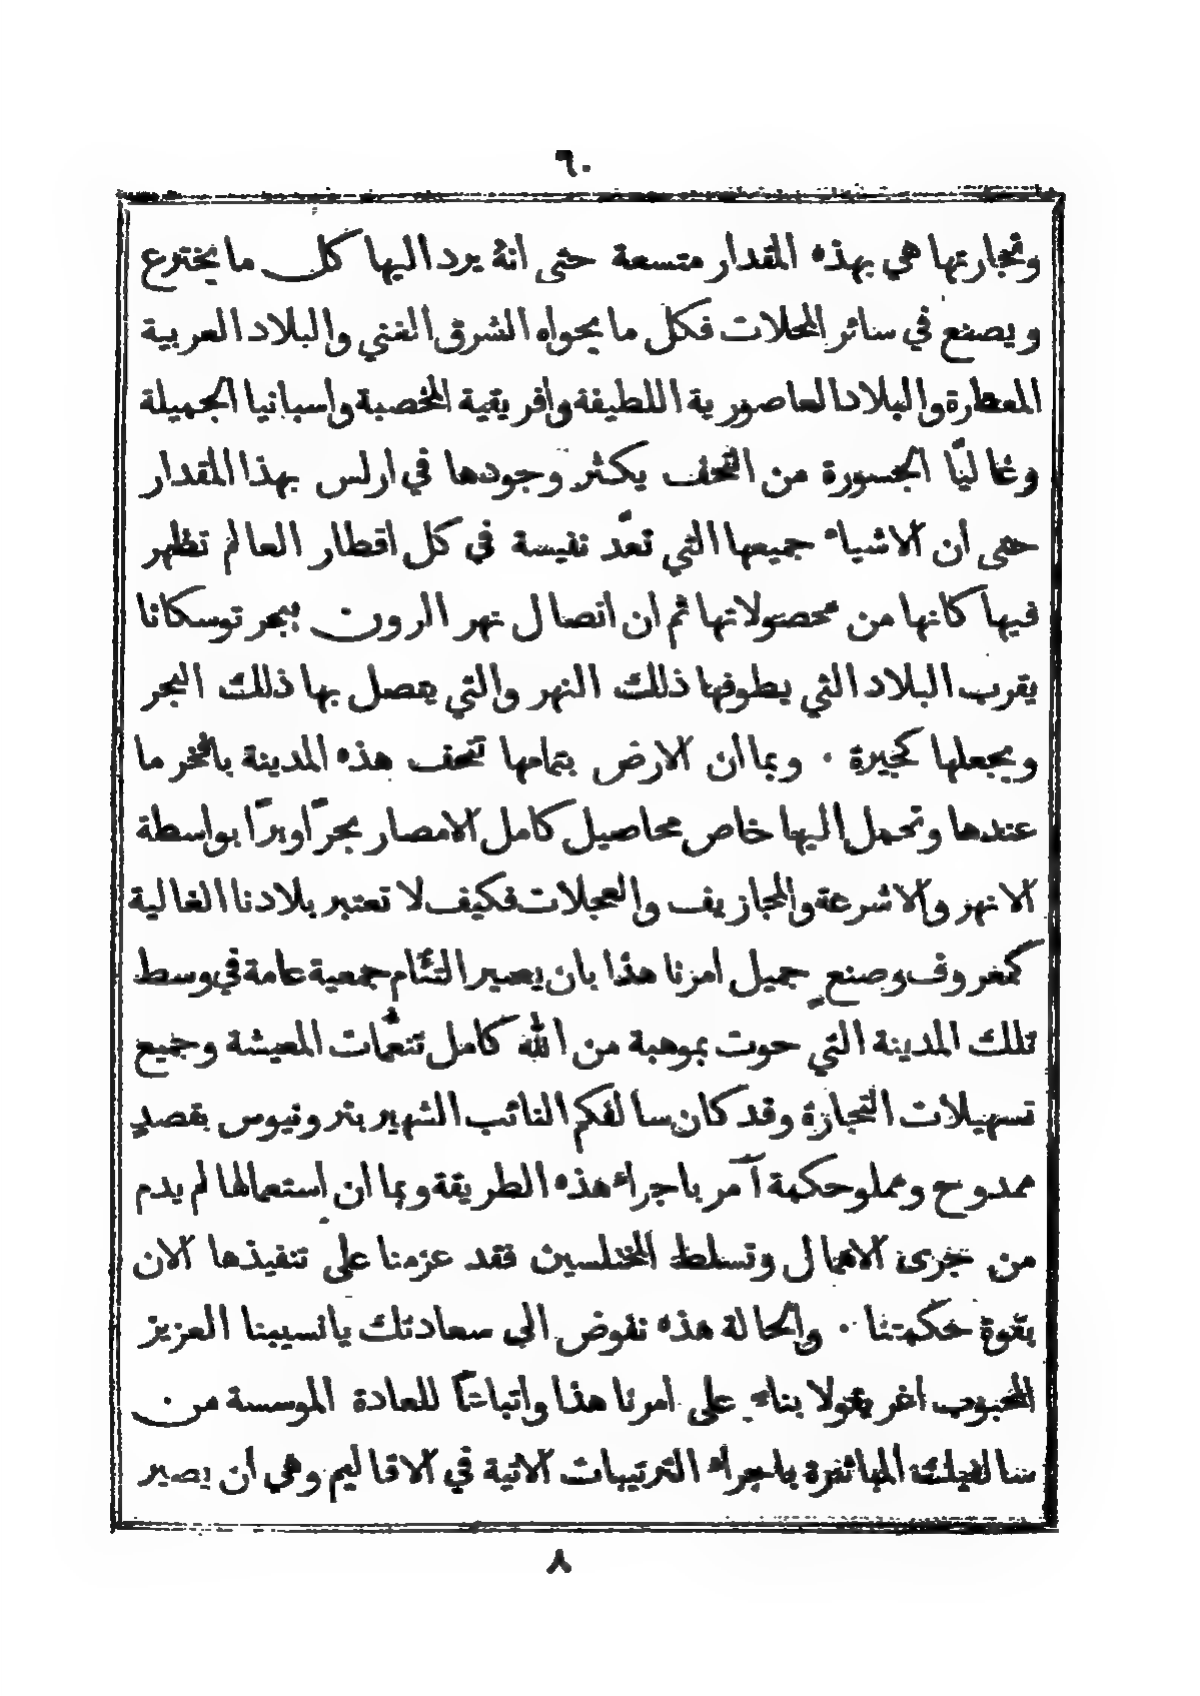 ٦٠
وتجارتها هي بهذه المقدار متسعة حتى انهُ يرد اليها كل ما يخترع
ويصنع في سائر المحلات فكل ما يحواه الشرق الغني والبلاد العربية
المعطرة والبلاد العاصورية اللطيفة وافريقية المخصبة واسبانيا الجميلة
وغاليّا الجسورة من التحف يكثر وجودها في ارلس بهذا المقدار
حتى ان الاشياء جميعها التي تعدّ نفيسة في كل اقطار العالم تظهر
فيها كانها من محصولاتها ثم ان اتصال نهر الرون ببحر توسكانا
يقرب البلاد التي يطوفها ذلك النهر والتي يتصل بها ذلك البحر
ويجعلها كجيرة ٠ وبما أن الارض بتمامها تتحف هذه المدينة بالمخر ما
عندها وتحمل اليها خاص محاصيل كامل الامصار بحرًّا وبرًّا بواسطة
الانهر والاشرعة والمجازيف والعجلات فكيف لا تعتبر بلادنا الغالية
كمغروف وصنع جميل امرنا هذا بان يصير التئام جمعية عامة في وسط
تلك المدينة التي حوت بموهبة من الله كامل تنعُّمات المعيشة وجميع
تسهيلات التجارة وقد كان سالفكم النائب الشهير بترونيوس بقصدٍ
ممدوح ومملو حكمة آمر باجراء هذه الطريقة وبما ان استعمالها لم يدم
من جرى الاهمال وتسلط المختلسين فقد عزمنا على تنفيذها الان
بقوة حكمتنا ٠ والحالة هذه نفوض الى سعادتك يا نسيبنا العزيز
المحبوب اغريقولا بناءً على امرنا هذا واتباعًا للعادة الموسسة من
سالفيك المباشرة باجراء الترتيبات الاتية في الاقاليم وهي ان يصير
٨